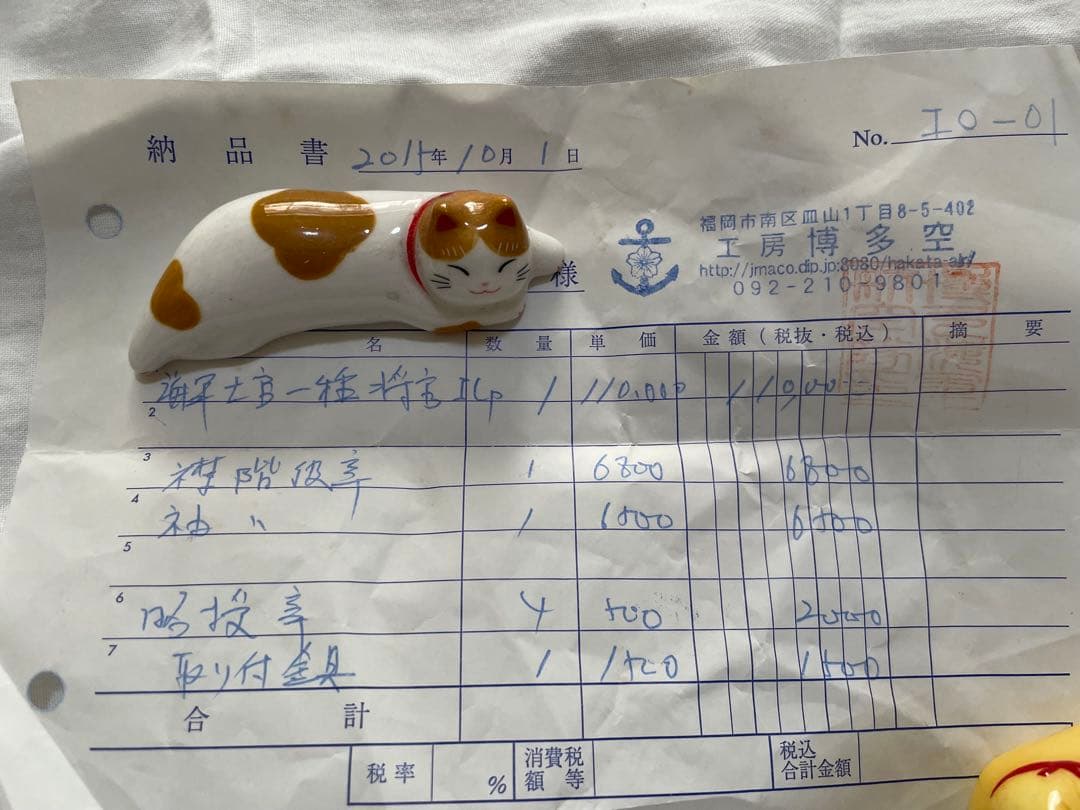 納品書 2015年10月1日
No. IO-01
様
福岡市南区皿山1丁目8-5-402
工房博多空
http://jmaco.dip.jp:8080/hakata-
092-210-9801
名 数量 単価 金額(税抜・税込) 摘要
海軍士官一種将官 1 110,000 110,000
2
3 襟階級章 1 6800 6800
4 袖 〃 1 6500 6500
5
6 略授章 4 500 2000
7 取り付金具 1 1500 1500
合計
税率 % 消費税額等 税込合計金額